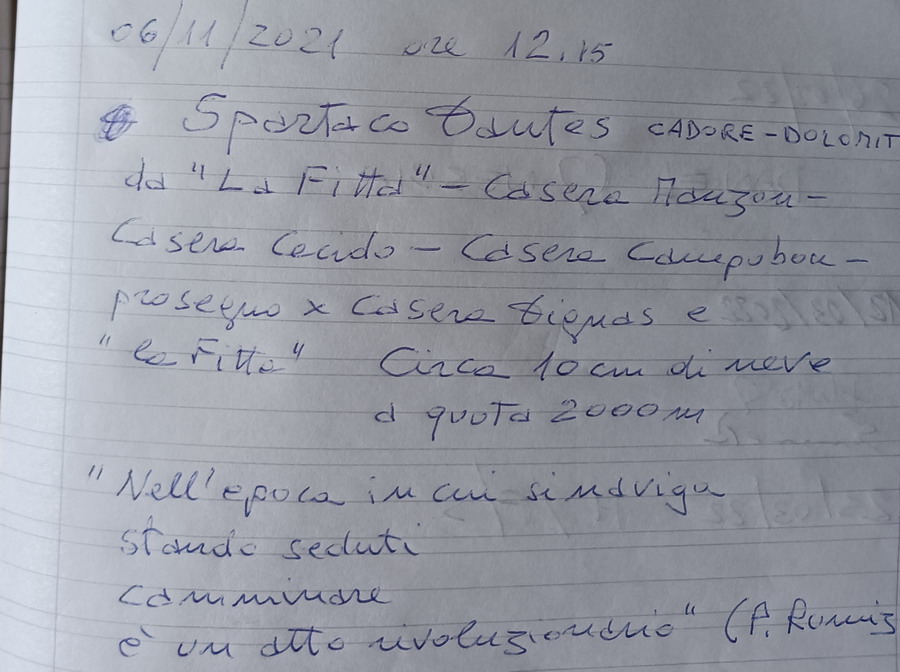 06/11/2021 ore 12.15
Spartaco Dantes CADORE-DOLOMIT
da "La Fitta" - Casera Manzon -
Casera Cecido - Casera Campobon -
proseguo x Casera Dignas e
"la Fitta" Circa 10 cm di neve
a quota 2000 m
"Nell'epoca in cui si naviga
stando seduti
camminare
è un atto rivoluzionario" (P. Rumiz